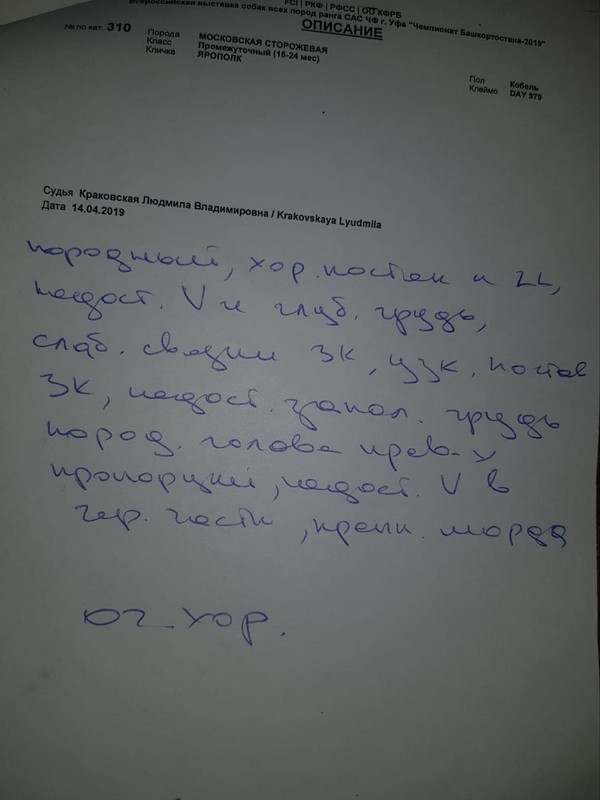 FCI | РКФ | РФСС | ОО КФРБ
Всероссийская выставка собак всех пород ранга САС ЧФ г. Уфа "Чемпионат Башкортостана-2019"
ОПИСАНИЕ
№ по кат. 310
Порода МОСКОВСКАЯ СТОРОЖЕВАЯ
Класс Промежуточный (15-24 мес)
Кличка ЯРОПОЛК
Пол Кобель
Клеймо DAY 979
Судья Краковская Людмила Владимировна / Krakovskaya Lyudmila
Дата 14.04.2019
породный, хор. костяк и
недост. V и глуб. грудь,
слаб. ЗК, узк. постав
ЗК, недост. запол. грудь
пород. голова
пропорций, недост. V в
чер. части, морда
оч-хор.